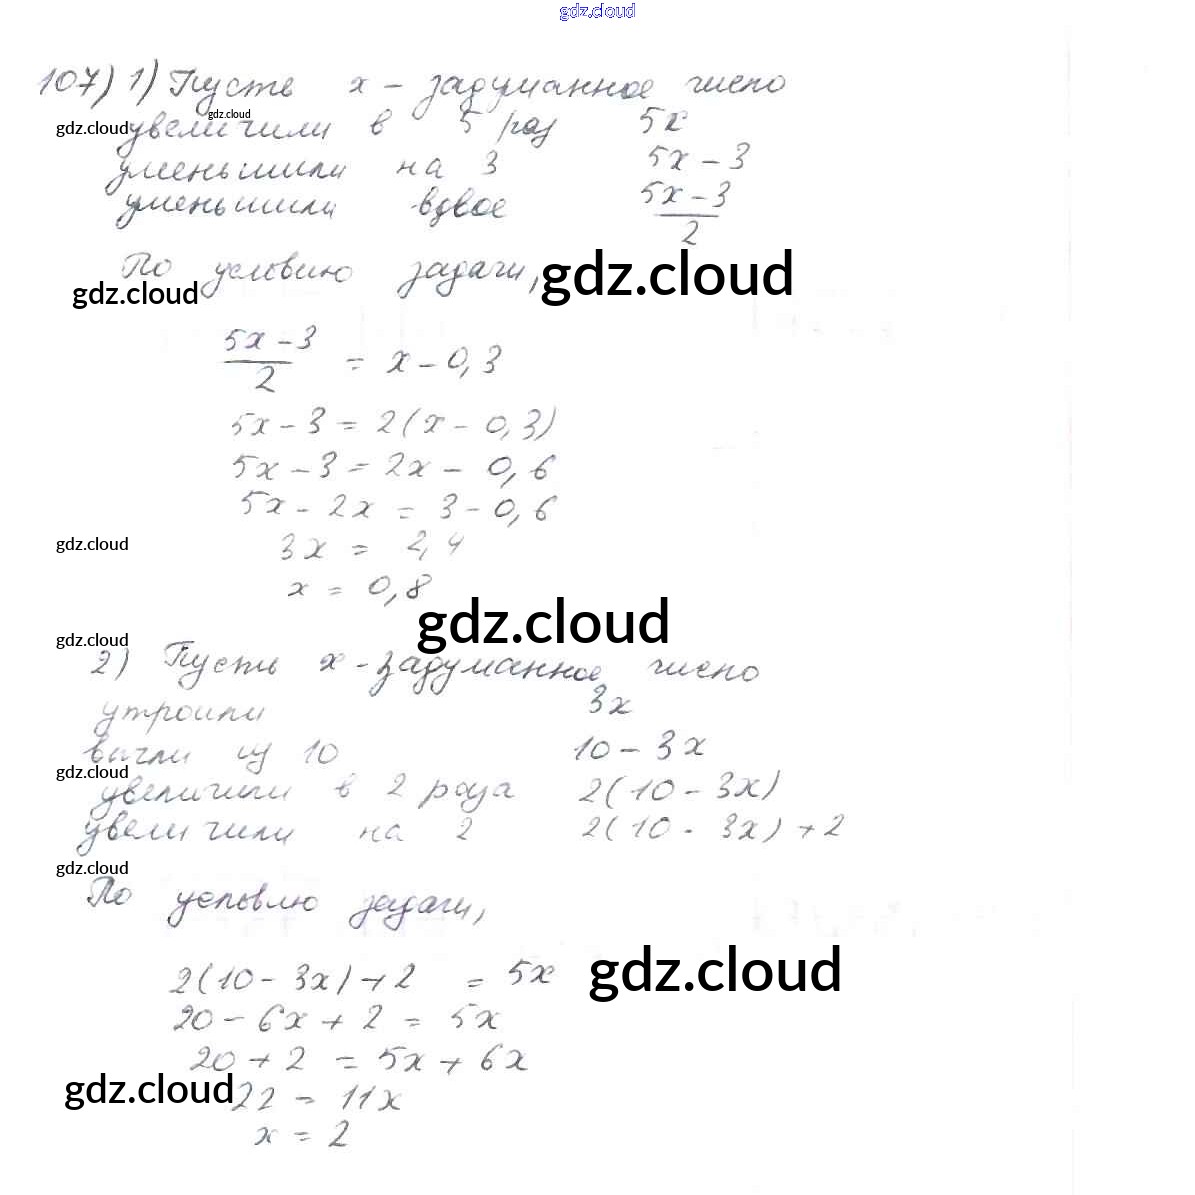 gdz.cloud
107) 1) Пусть x - задуманное число
gdz.cloud
gdz.cloud увеличили в 5 раз 5x
уменьшили на 3 5x - 3
уменьшили вдвое (5x - 3)/2
По условию задачи, gdz.cloud
gdz.cloud
(5x - 3)/2 = x - 0,3
5x - 3 = 2(x - 0,3)
5x - 3 = 2x - 0,6
5x - 2x = 3 - 0,6
gdz.cloud 3x = 2,4
x = 0,8
gdz.cloud
gdz.cloud
2) Пусть x - задуманное число
утроили 3x
вычли из 10 10 - 3x
gdz.cloud
увеличили в 2 раза 2(10 - 3x)
увеличили на 2 2(10 - 3x) + 2
gdz.cloud
По условию задачи,
2(10 - 3x) + 2 = 5x gdz.cloud
20 - 6x + 2 = 5x
20 + 2 = 5x + 6x
gdz.cloud 22 = 11x
x = 2